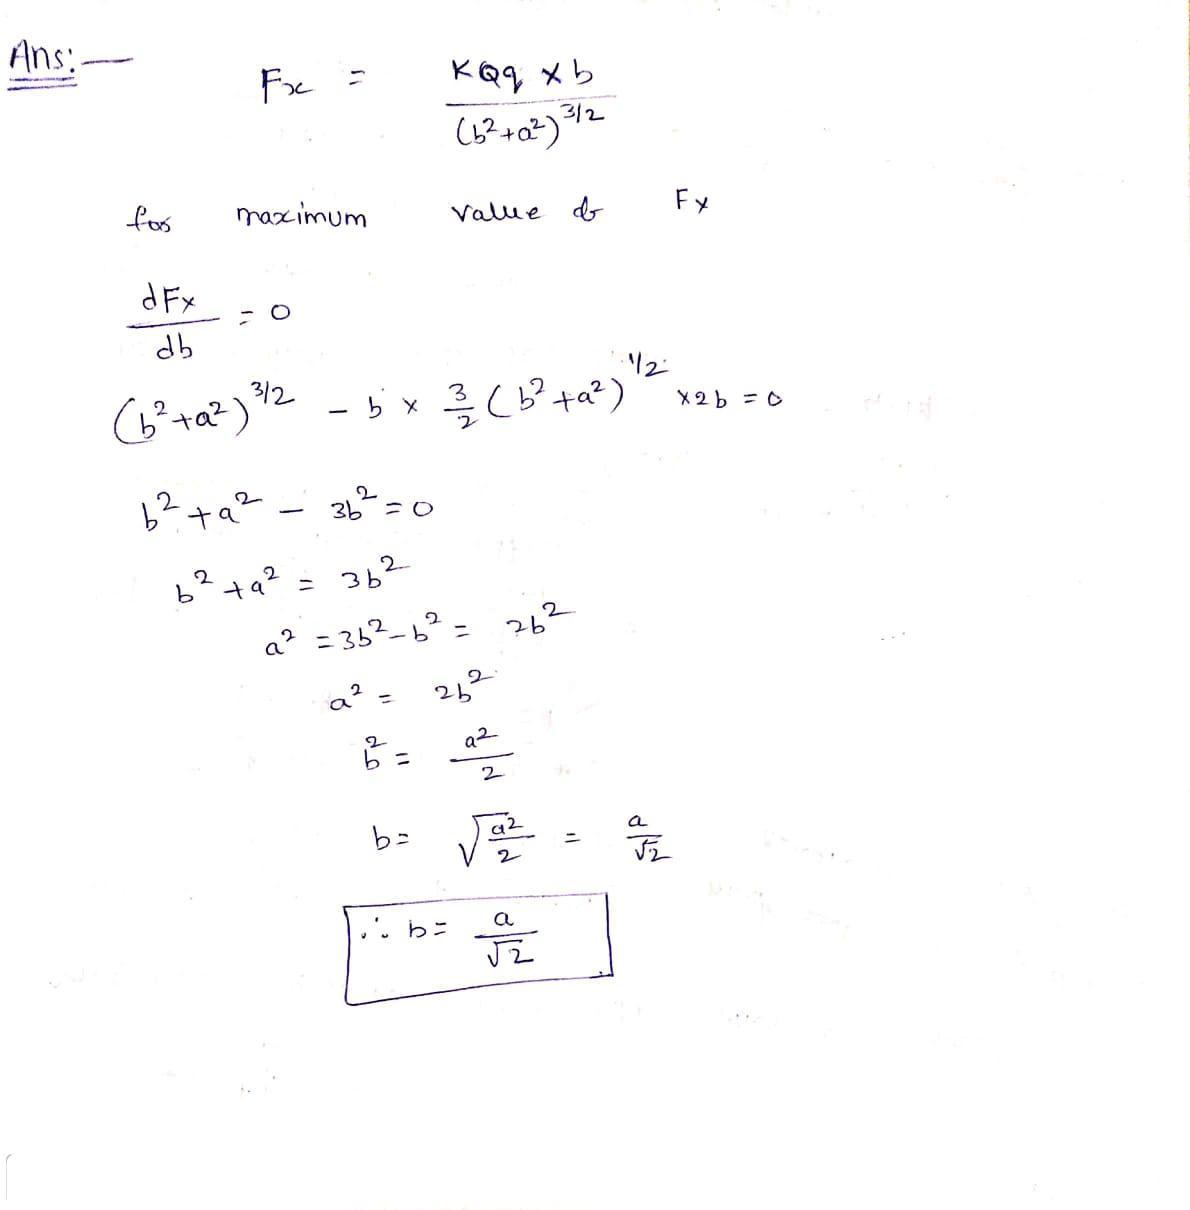 Ans:—
Fx = KQq × b / (b²+a²)^3/2
for maximum value of Fx
dFx/db = 0
(b²+a²)^3/2 - b × 3/2 (b²+a²)^1/2 × 2b = 0
b²+a² - 3b² = 0
b²+a² = 3b²
a² = 3b²-b² = 2b²
a² = 2b²
b² = a²/2
b = √a²/2 = a/√2
∴ b = a/√2